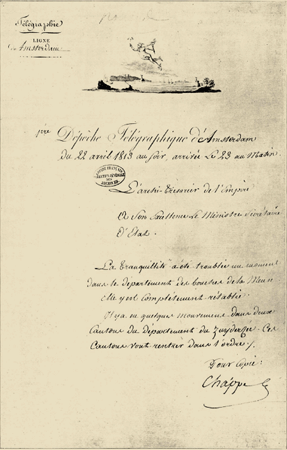 Télégraphie
LIGNE
d'Amsterdam
1ère Dépêche Télégraphique d'Amsterdam
du 22 avril 1813 au soir, arrivée Le 23 au Matin
L'archi-trésorier de l'Empire
A Son Excellence Le Ministre Secrétaire
D'Etat.
La tranquillité a été troublée un moment
dans le departement des bouches de la Meuse
elle y est complettement rétablie.
Il y a eu quelque mouvement dans deux
Cantons du département du Zuyderzée. Ces
Cantons vont rentrer dans l'ordre ./.
Pour Copie
Chappe